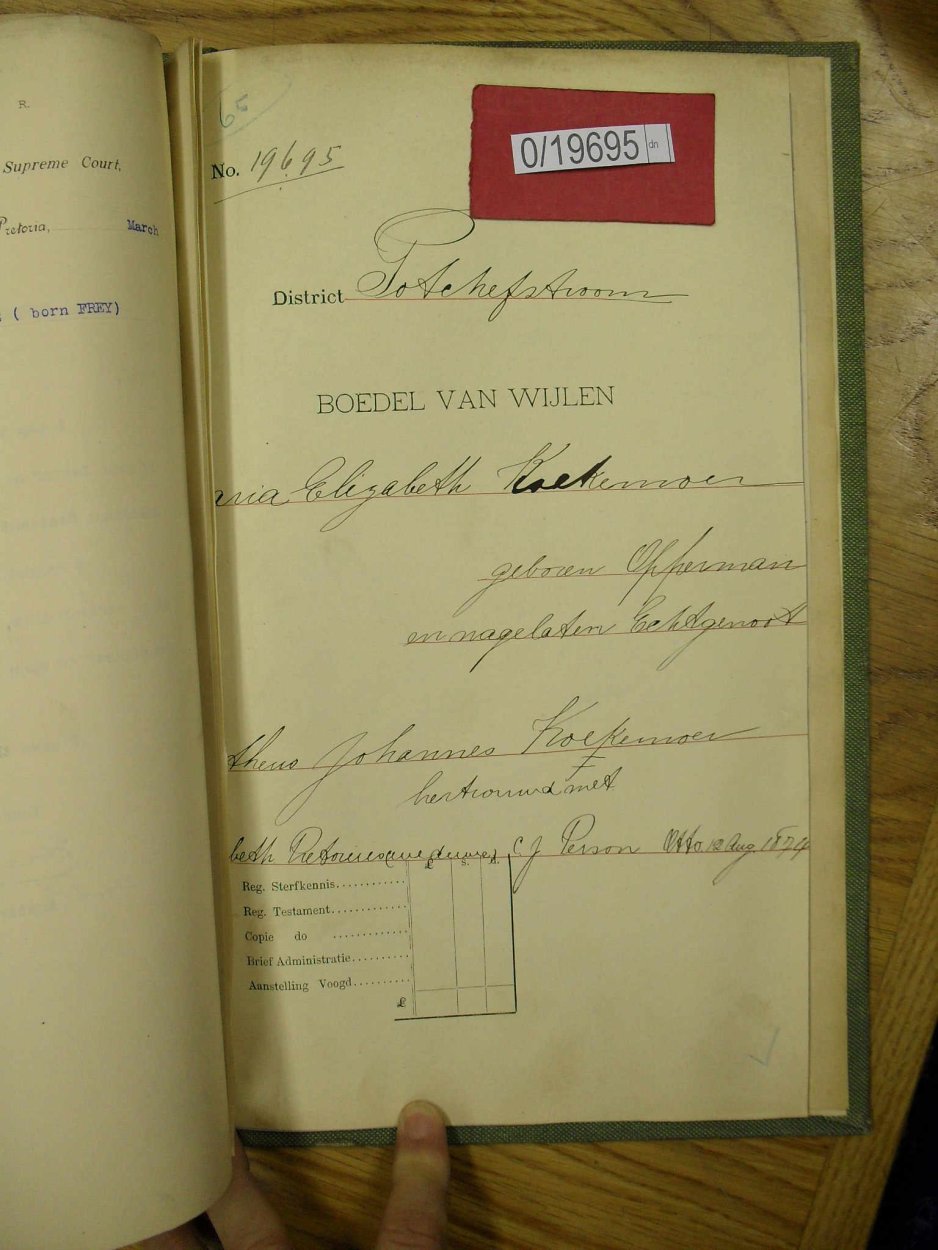 R.
Supreme Court,
Pretoria, March
( born FREY)
65
No. 19695
0/19695 dn
District Potchefstroom
BOEDEL VAN WIJLEN
aria Elizabeth Koekemoer
geboren Opperman
en nagelaten Echtgenoot
theus Johannes Koekemoer
hertrouwd met
beth Pretorius C J Person Otto 12 Aug
£ s. d.
Reg. Sterfkennis
Reg. Testament
Copie do
Brief Administratie
Aanstelling Voogd
£